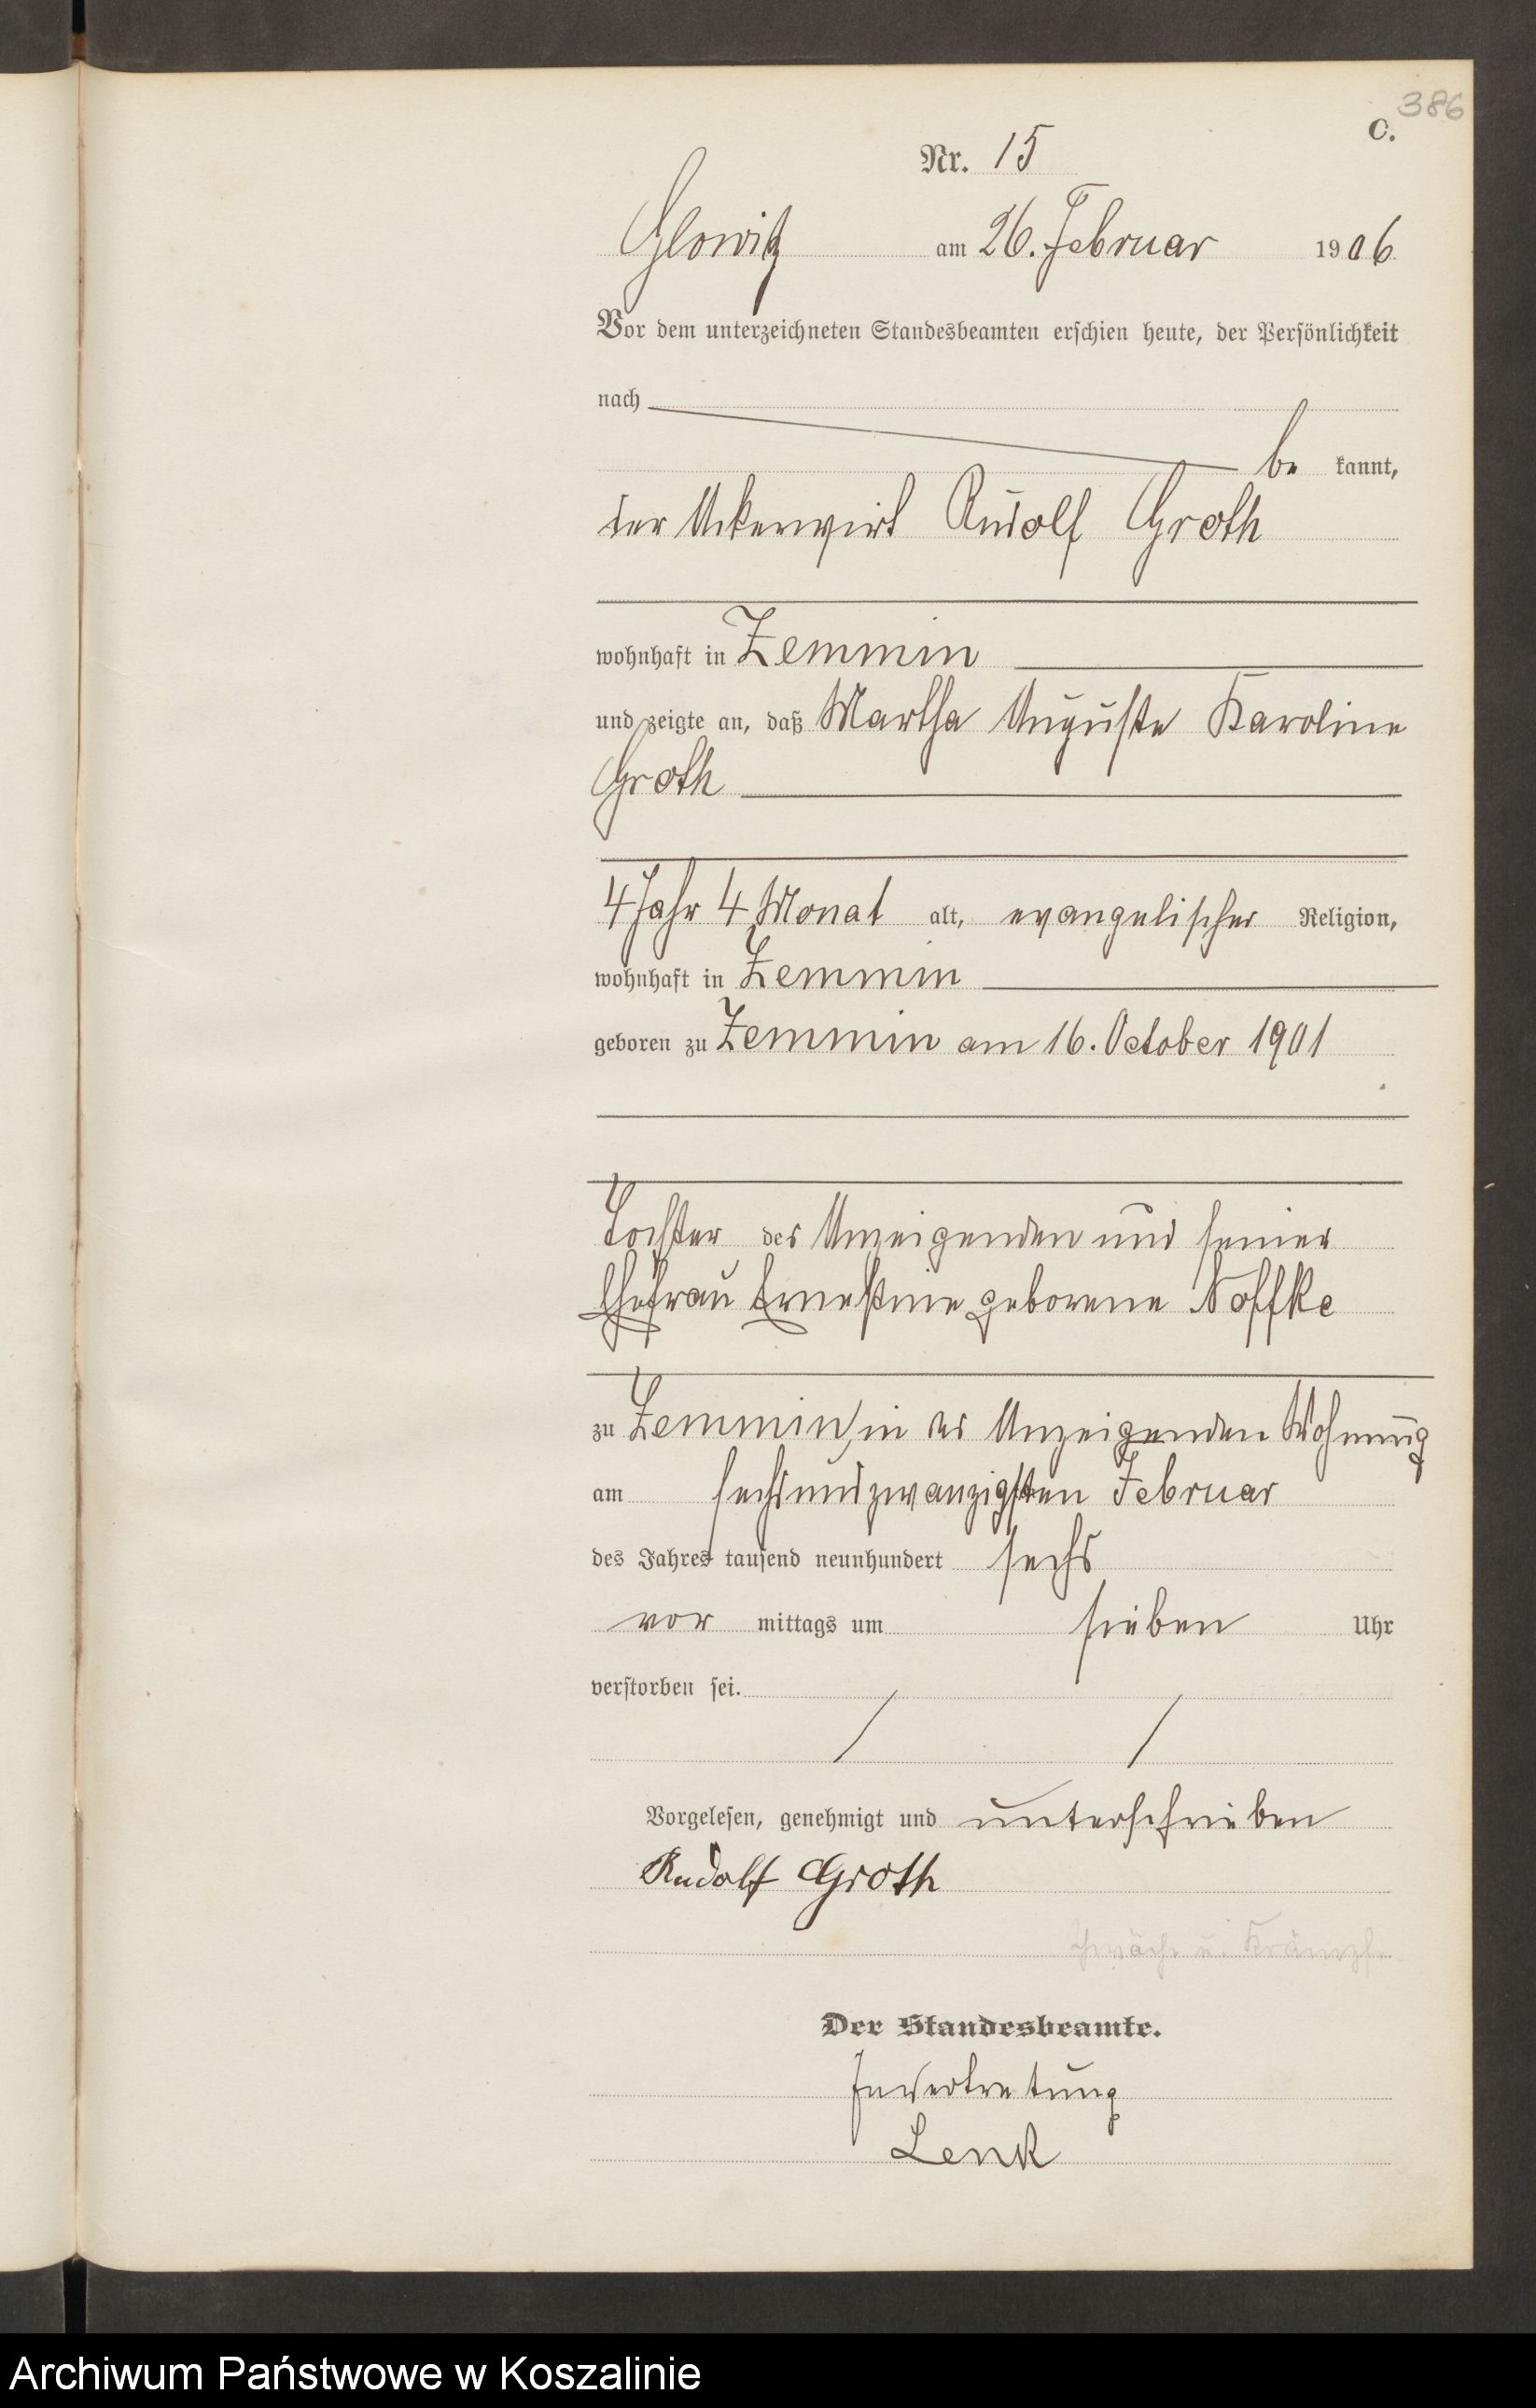 386
C.
Nr. 15
Glowitz am 26. Februar 1906
Vor dem unterzeichneten Standesbeamten erschien heute, der Persönlichkeit
nach
be kannt,
der Ackerwirt Rudolf Groth
wohnhaft in Zemmin
und zeigte an, daß Martha Auguste Karoline
Groth
4 Jahr 4 Monat alt, evangelischer Religion,
wohnhaft in Zemmin
geboren zu Zemmin am 16. October 1901
Tochter des Anzeigenden und seiner
Ehefrau Ernestine geborene Noffke
zu Zemmin, in des Anzeigenden Wohnung
am sechsundzwanzigsten Februar
des Jahres tausend neunhundert sechs
vor mittags um sieben Uhr
verstorben sei.
Vorgelesen, genehmigt und unterschrieben
Rudolf Groth
Der Standesbeamte.
In Vertretung
Lenk
Archiwum Państwowe w Koszalinie